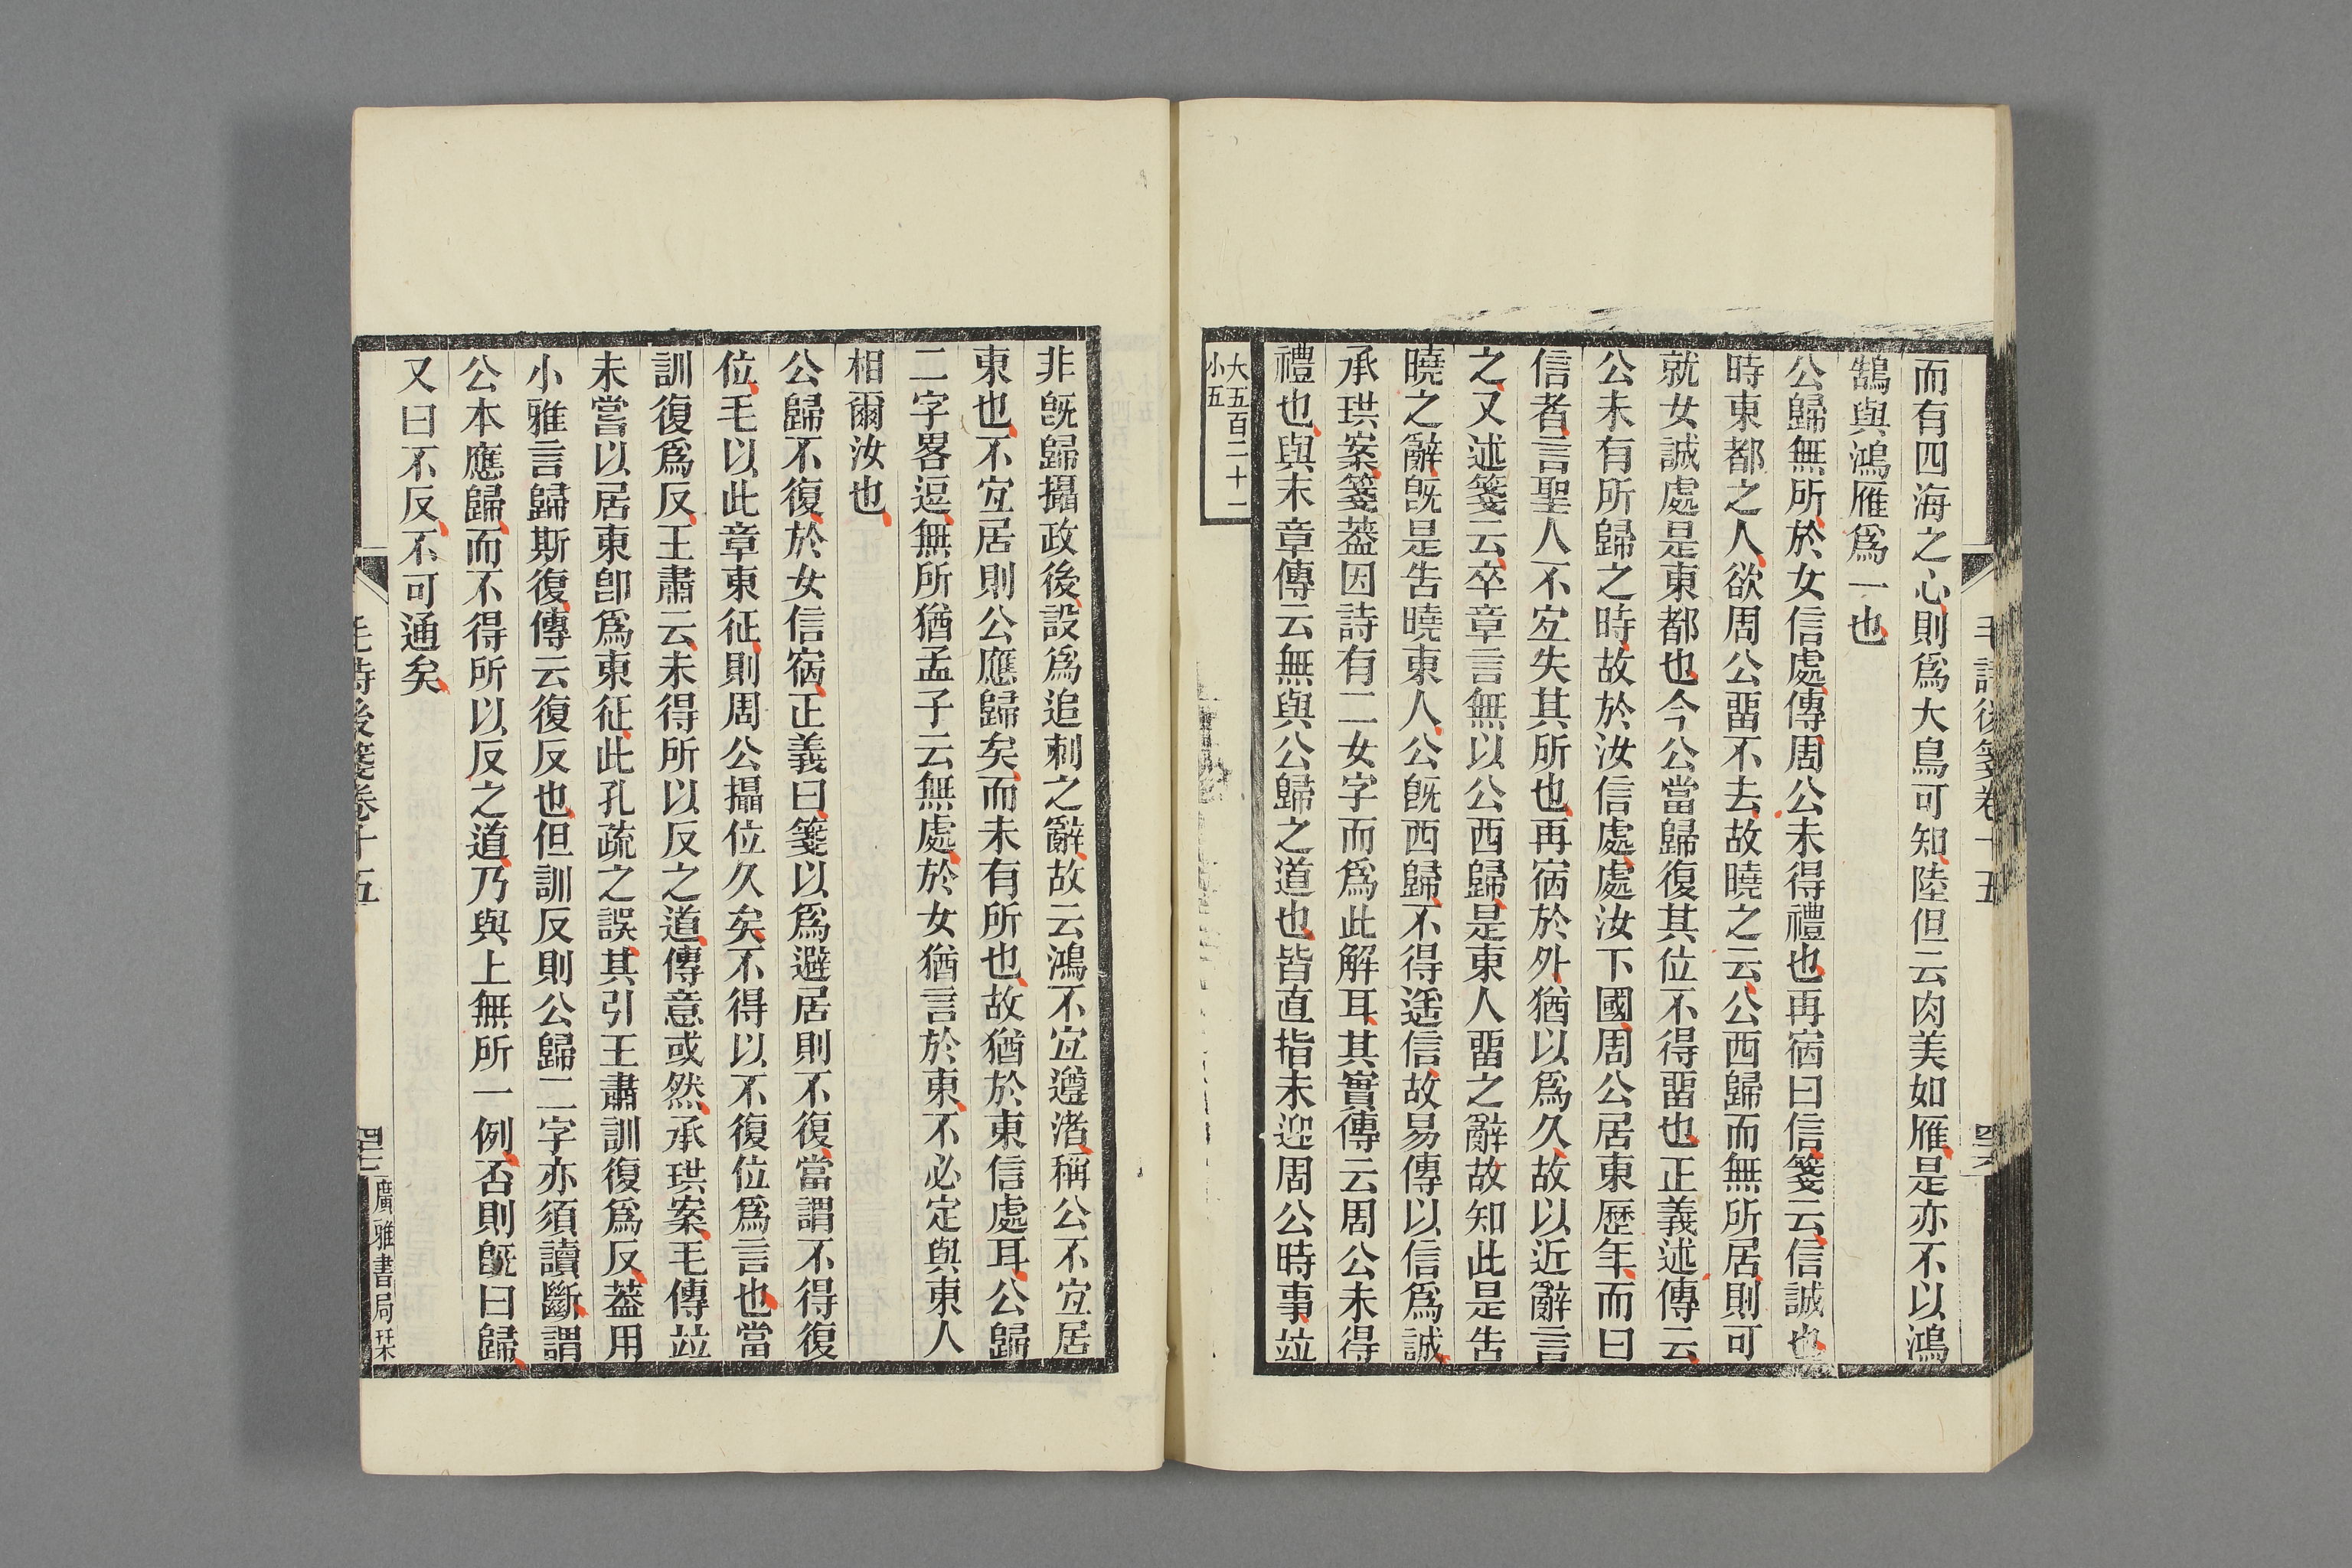 而有四海之心則爲大鳥可知陸但云肉美如雁是亦不以鴻
鵠與鴻雁爲一也
公歸無所於女信處傳周公未得禮也再宿曰信箋云信誠也
時東都之人欲周公畱不去故曉之云公西歸而無所居則可
就女誠處是東都也今公當歸復其位不得畱也正義述傳云
公未有所歸之時故於汝信處處汝下國周公居東歷年而曰
信者言聖人不宐失其所也再宿於外猶以爲久故以近辭言
之又述箋云卒章言無以公西歸是東人畱之辭故知此是告
曉之辭旣是告曉東人公旣西歸不得遙信故易傳以信爲誠
承珙案箋葢因詩有二女字而爲此解耳其實傳云周公未得
禮也與末章傳云無與公歸之道也皆直指未迎周公時事竝
大五百二十一
小五
毛詩後箋卷十五
四十六
非旣歸攝政後設爲追刺之辭故云鴻不宐遵渚稱公不宐居
東也不宐居則公應歸矣而未有所也故猶於東信處耳公歸
二字畧逗無所猶孟子云無處於女猶言於東不必定與東人
相爾汝也
公歸不復於女信宿正義曰箋以爲避居則不復當謂不得復
位毛以此章東征則周公攝位久矣不得以不復位爲言也當
訓復爲反王肅云未得所以反之道傳意或然承珙案毛傳竝
未嘗以居東卽爲東征此孔疏之誤其引王肅訓復爲反葢用
小雅言歸斯復傳云復反也但訓反則公歸二字亦須讀斷謂
公本應歸而不得所以反之道乃與上無所一例否則旣曰歸
又曰不反不可通矣
毛詩後箋卷十五
廣雅書局栞